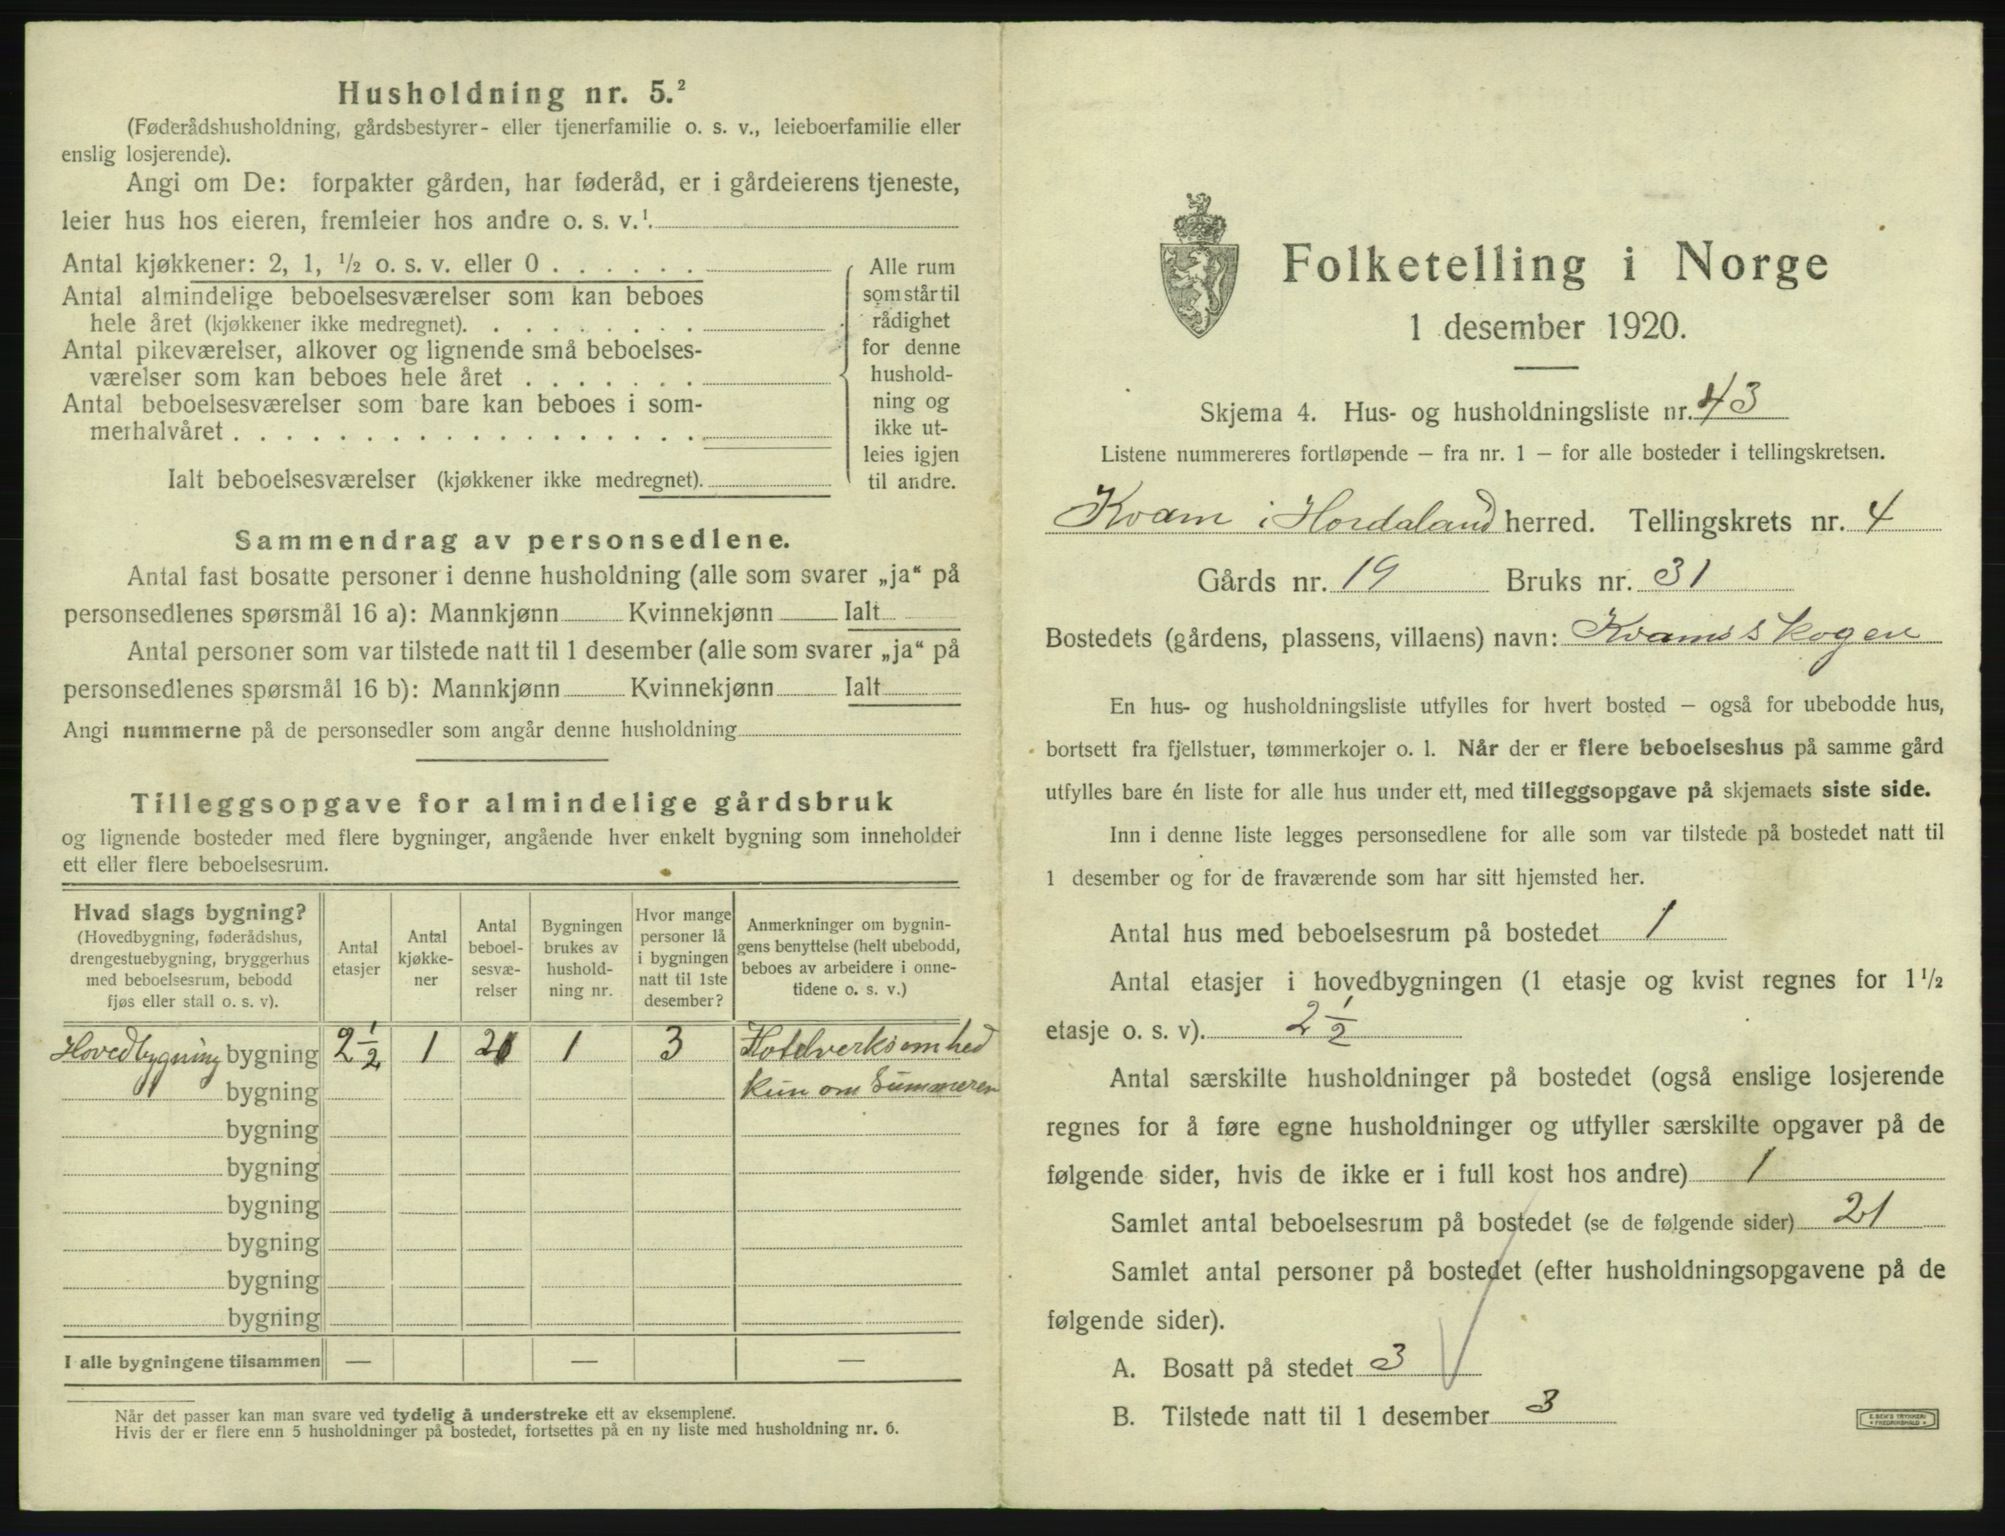 Husholdning nr. 5.²
(Føderådshusholdning, gårdsbestyrer- eller tjenerfamilie o. s. v., leieboerfamilie eller
enslig losjerende).
Angi om De: forpakter gården, har føderåd, er i gårdeierens tjeneste,
leier hus hos eieren, fremleier hos andre o. s. v.¹
Antal kjøkkener: 2, 1, ½ o. s. v. eller 0 . . . . . .
Antal almindelige beboelsesværelser som kan beboes
hele året (kjøkkener ikke medregnet). . . . . . . . .
Antal pikeværelser, alkover og lignende små beboelses-
værelser som kan beboes hele året . . . . . . .
Antal beboelsesværelser som bare kan beboes i som-
merhalvåret . . . . . . . . . . . . . . . . . .
Ialt beboelsesværelser (kjøkkener ikke medregnet).
Alle rum
som står til
rådighet
for denne
hushold-
ning og
ikke ut-
leies igjen
til andre.
Sammendrag av personsedlene.
Antal fast bosatte personer i denne husholdning (alle som svarer „ja“ på
personsedlenes spørsmål 16 a): Mannkjønn Kvinnekjønn Ialt
Antal personer som var tilstede natt til 1 desember (alle som svarer „ja“ på
personsedlenes spørsmål 16 b): Mannkjønn Kvinnekjønn Ialt
Angi nummerne på de personsedler som angår denne husholdning
Tilleggsopgave for almindelige gårdsbruk
og lignende bosteder med flere bygninger, angående hver enkelt bygning som inneholder
ett eller flere beboelsesrum.
Hvad slags bygning?
(Hovedbygning, føderådshus,
drengestuebygning, bryggerhus
med beboelsesrum, bebodd
fjøs eller stall o. s. v).
Antal
etasjer
Antal
kjøkke-
ner
Antal
beboel-
sesvæ-
relser
Bygningen
brukes av
hushold-
ning nr.
Hvor mange
personer lå
i bygningen
natt til 1ste
desember?
Anmerkninger om bygnin-
gens benyttelse (helt ubebodd,
beboes av arbeidere i onne-
tidene o. s. v.)
Hovedbygning bygning 2½ 1 21 1 3 Hotelverksomhed
bygning kun om Summeren
bygning
bygning
bygning
bygning
bygning
bygning
I alle bygningene tilsammen — — —
Når det passer kan man svare ved tydelig å understreke ett av eksemplene.
Hvis der er flere enn 5 husholdninger på bostedet, fortsettes på en ny liste med husholdning nr. 6.
Folketelling i Norge
1 desember 1920.
Skjema 4. Hus- og husholdningsliste nr. 43
Listene nummereres fortløpende – fra nr. 1 – for alle bosteder i tellingskretsen.
Kvam i Hordaland herred. Tellingskrets nr. 4
Gårds nr. 19 Bruks nr. 31
Bostedets (gårdens, plassens, villaens) navn: Kvamsskogen
En hus- og husholdningsliste utfylles for hvert bosted – også for ubebodde hus,
bortsett fra fjellstuer, tømmerkojer o. l. Når der er flere beboelseshus på samme gård
utfylles bare én liste for alle hus under ett, med tilleggsopgave på skjemaets siste side.
Inn i denne liste legges personsedlene for alle som var tilstede på bostedet natt til
1 desember og for de fraværende som har sitt hjemsted her.
Antal hus med beboelsesrum på bostedet 1
Antal etasjer i hovedbygningen (1 etasje og kvist regnes for 1½
etasje o. s. v). 2½
Antal særskilte husholdninger på bostedet (også enslige losjerende
regnes for å føre egne husholdninger og utfyller særskilte opgaver på de
følgende sider, hvis de ikke er i full kost hos andre) 1
Samlet antal beboelsesrum på bostedet (se de følgende sider) 21
Samlet antal personer på bostedet (efter husholdningsopgavene på de
følgende sider).
A. Bosatt på stedet 3
B. Tilstede natt til 1 desember 3
E. SEM'S TRYKKERI
FREDRIKSHALD